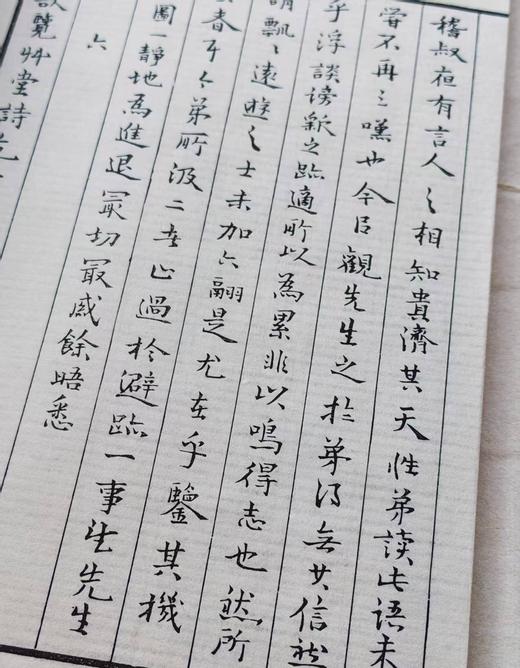 嵇叔夜有言人之相知貴濟其天性弟讀此語未
嘗不再三嘆也今日觀先生之於弟得無其信然
乎浮談謗新之跡適所以為累非以鳴得志也然所
謂飄飄遠遊之士未加六翮是尤在乎鑒其機
春耳今弟所汲二者止過於避跡一事先生
圖一靜地為進退最切最感餘晤悉
六
覽艸堂詩